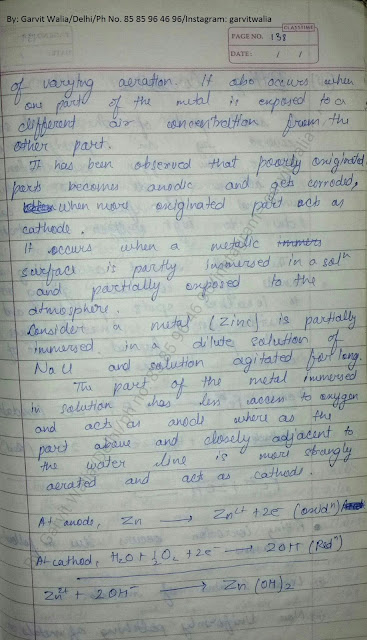 By: Garvit Walia/Delhi/Ph No. 85 85 96 46 96/Instagram: garvitwalia
CLASSTIME
PAGE NO. 138
DATE: / /
of varying aeration. It also occurs when
one part of the metal is exposed to a
different air concentration from the
other part.
It has been observed that poorly oxiginated
parts becomes anodic and gets corroded,
when more oxiginated part act as
cathode.
It occurs when a metallic
surface is partly immersed in a solⁿ
and partially exposed to the
atmosphere.
Consider a metal (Zinc) is partially
immersed in a dilute solution of
NaCl and solution agitated for long.
The part of the metal immersed
in solution has less access to oxygen
and act as anode where as the
part above and closely adjacent to
the water line is more strongly
aerated and act as cathode.
At anode, Zn ⟶ Zn²⁺ + 2e⁻ (oxidⁿ)
At cathod, H₂O + ½O₂ + 2e⁻ ⟶ 2OH⁻ (Redⁿ)
Zn²⁺ + 2OH⁻ ⟶ Zn(OH)₂